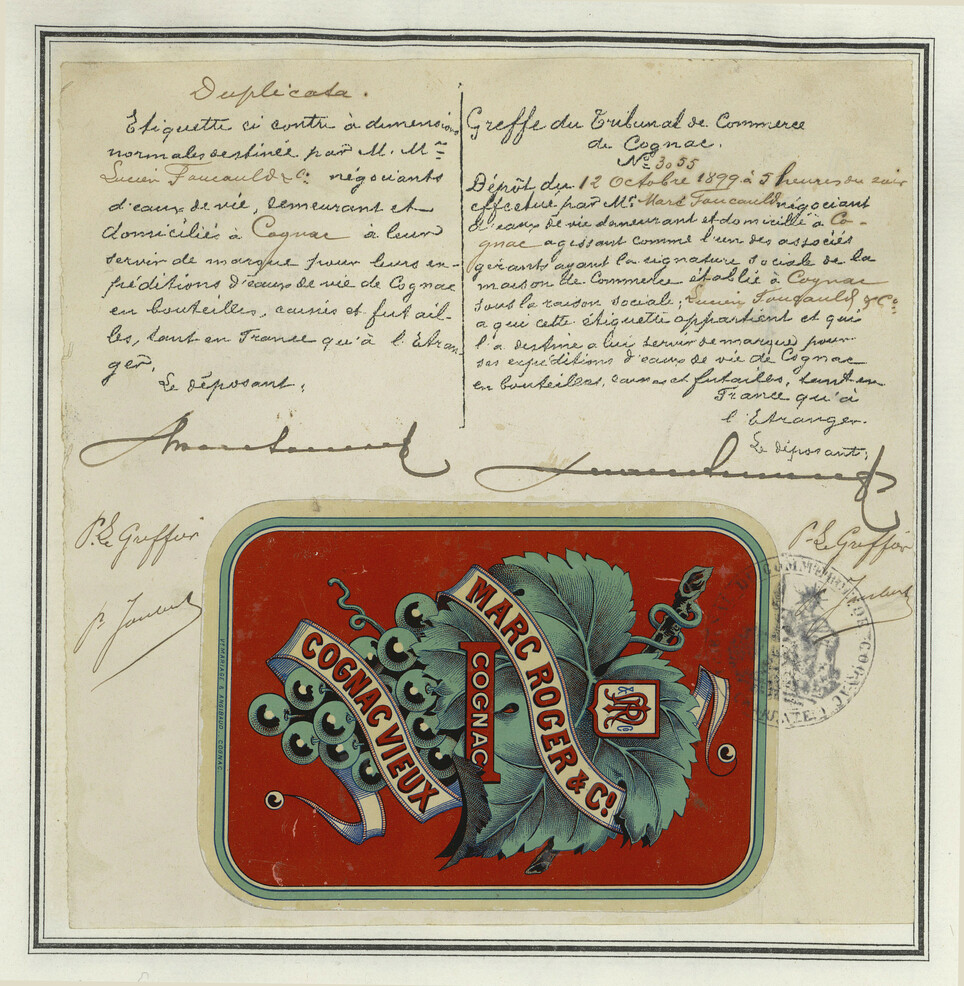 Duplicata.
Etiquette ci contre à dimensions
normales destinée par M. Mrs
Lucien Foucauld & Cie négociants
d'eaux de vie, demeurant et
domiciliés à Cognac à leur
servir de marque pour leurs ex-
péditions d'eaux de vie de Cognac
en bouteilles, caisses et futail-
les, tant en France qu'à l'Etran
ger.
Le déposant;
Greffe du Tribunal de Commerce
de Cognac.
No 3055
Dépôt du 12 Octobre 1899 à 5 heures du soir
effectué par Mr Marc Foucauld négociant
d'eaux de vie demeurant et domicilié à Co-
gnac agissant comme l'un des associés
gérants ayant la signature sociale de la
maison de Commerce établie à Cognac
sous la raison sociale; Lucien Foucauld & Cie
a qui cette étiquette appartient et qui
l'a destine a lui servir de marque pour
ses expéditions d'eaux de vie de Cognac
en bouteilles, caisses et futailles, tant en
France qu'à
l'Etranger.
Le déposant;
P. Le Greffier
P. Joubert
P. Le Greffier
Joubert
MARC ROGER & Co.
COGNAC
COGNAC VIEUX
& MR Co
COGNAC